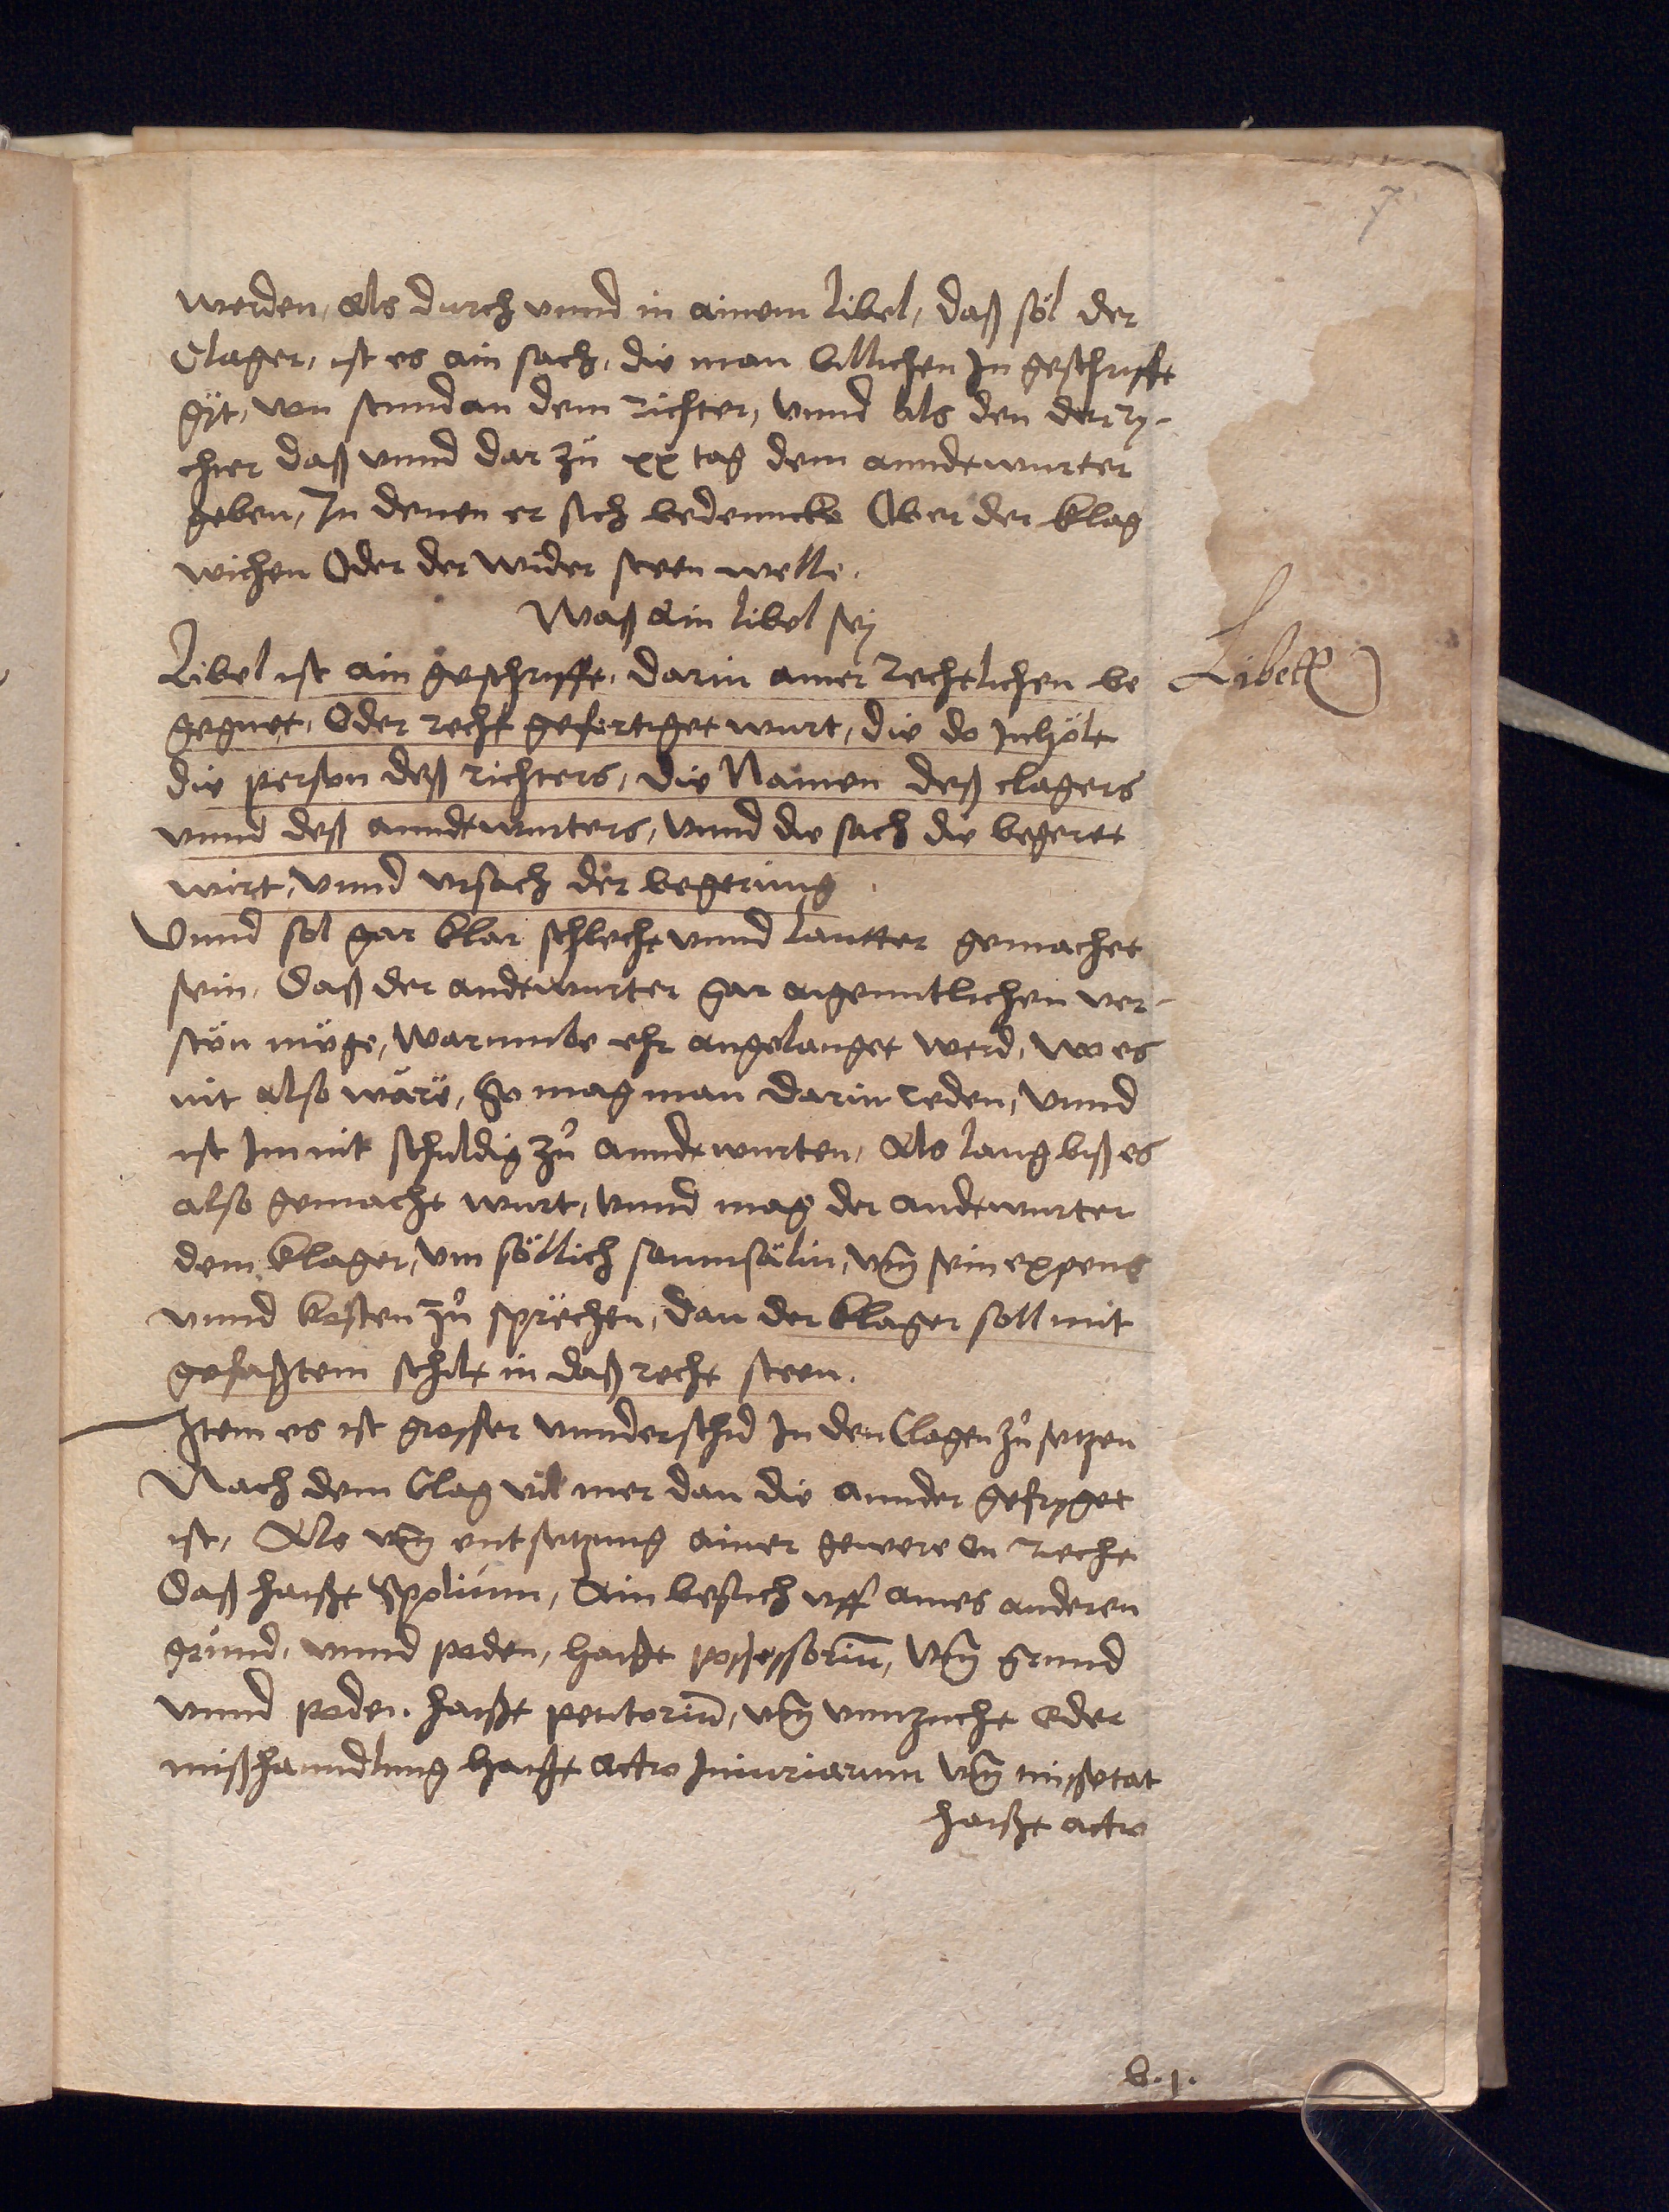 7
werden, als durch vnnd in ainem libel, daß söl der
Clager, ist es ain sach, die man billichen In geschrifft
gÿt, von stund an dem richter, Vnnd als den der ry-
chter daß vnnd dar zů xx tag dem anndtwurter
geben, In denen er sich bedenncke Ob er der klag
wichen Oder der wider steen welle.
Waß Ain libel sey
Libel ist ain geschryfft, darin ainer rechtlichen be
Libell
gegnet, Oder recht gefertiget wurt, die do Inhölt
die person deß richters, die Namen deß clagers
vnnd deß anndtwurters, Vnnd die sach die begeret
wirt, Vnnd vrsach der begerung.
Vnnd sol gar klar schlecht vnnd lautter gemachet
sein, Daß der andtwurter gar aigenntlichen ver-
stön müge, Warumbe ehr angelanget werd, Wo es
nit also wäre, So mag man darin reden, Vnnd
ist Im nit schuldig zů anndtwurten, Als lang biß es
also gemacht wurt, Vnnd mag der andtwurter
dem klager, vm söllich saumsälin, vm̄ sein expens
vnnd kosten zů sprechen, Dan der klager soll mit
gefaßtem schilt in daß recht steen.
Item es ist grosser vnnderschid In den Clagen zů setzen
Nach dem Clag vil mer dan die annder gefryget
ist, Als vm̄ entsetzung ainer gewere on recht
Daß haißt Spolium, Ain besuch vff aines anderen
grund, vnnd poden, haißt possessoriū, Vm̄ grund
vnnd poden. haißt petitoriū, vm̄ vnnzucht oder
mißhanndlung haißt actio Iniuriarum Vm̄ missetat
haißt actio
b.j.